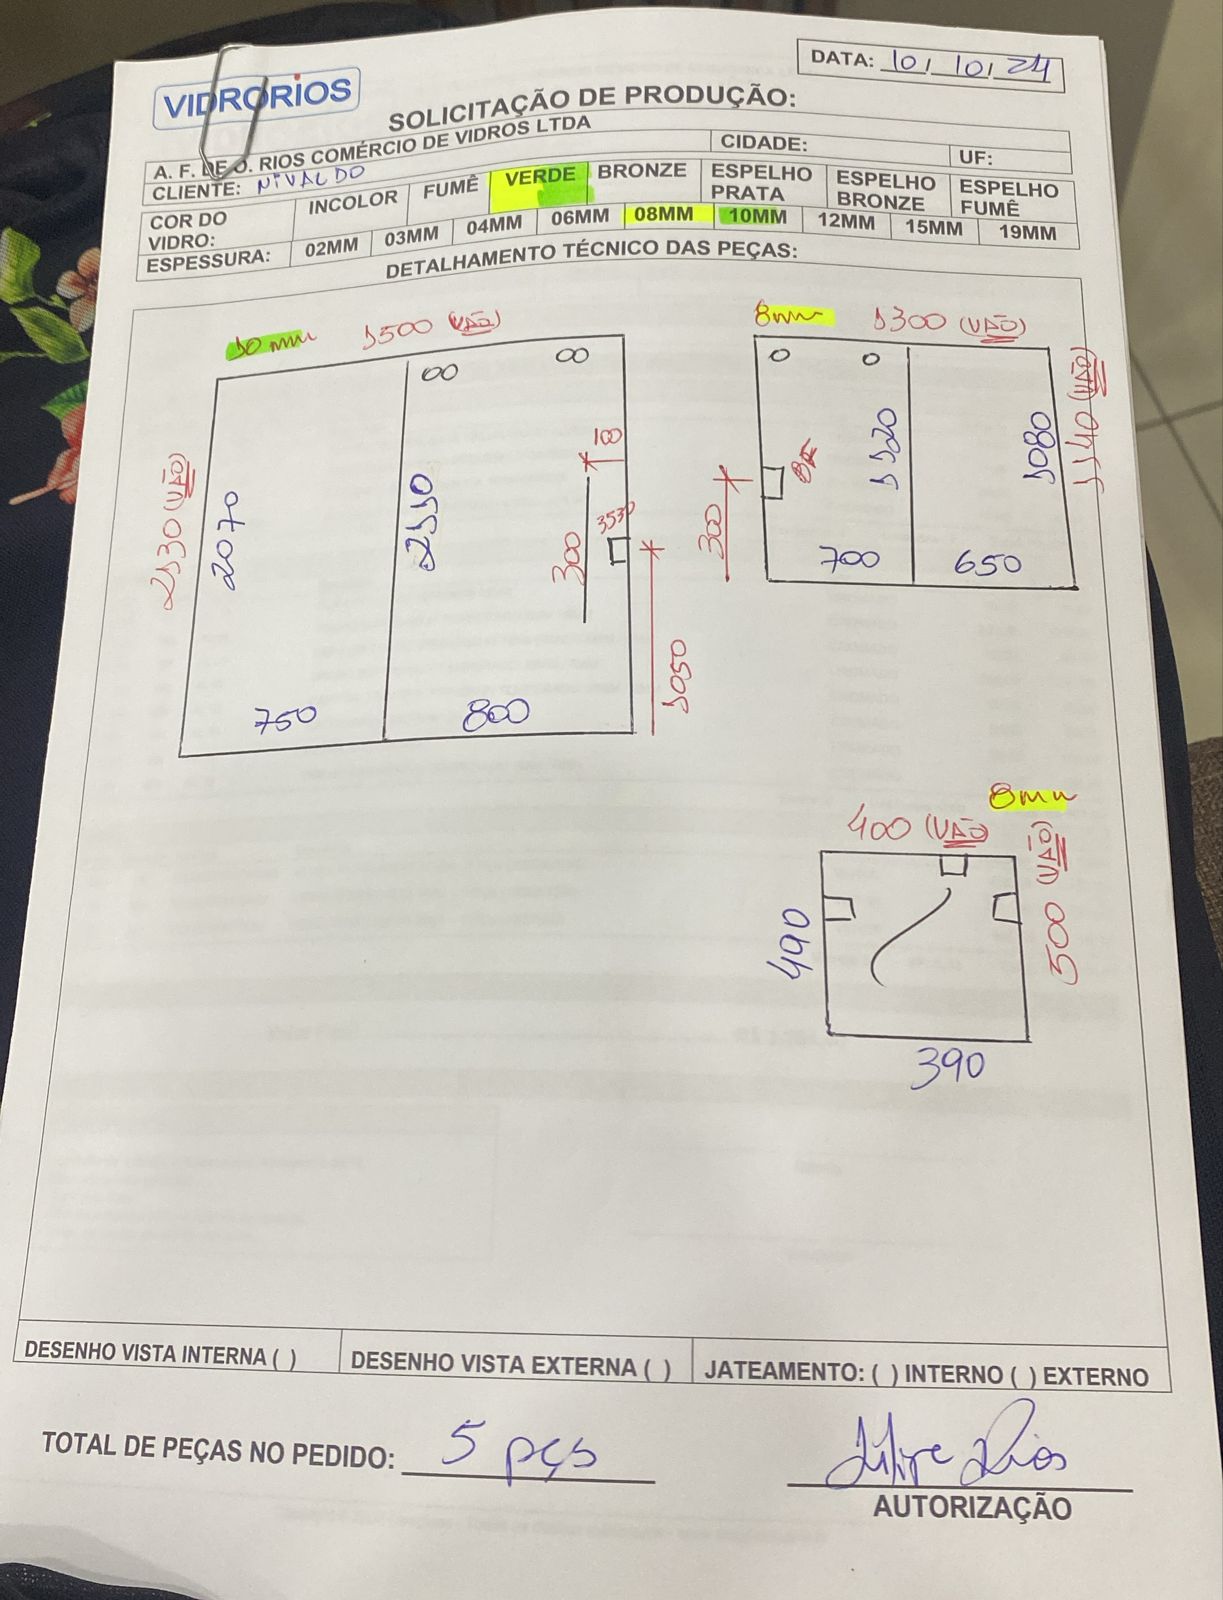 DATA: 10/10/24
VIDRORIOS
SOLICITAÇÃO DE PRODUÇÃO:
A. F. DE O. RIOS COMÉRCIO DE VIDROS LTDA
CIDADE:
UF:
CLIENTE: NIVALDO
COR DO VIDRO:
INCOLOR
FUMÊ
VERDE
BRONZE
ESPELHO PRATA
ESPELHO BRONZE
ESPELHO FUMÊ
ESPESSURA:
02MM
03MM
04MM
06MM
08MM
10MM
12MM
15MM
19MM
DETALHAMENTO TÉCNICO DAS PEÇAS:
10 mm
1500 (VÃO)
2130 (VÃO)
2070
2110
100
3530
300
1050
750
800
8mm
1300 (VÃO)
1140 (VÃO)
1120
1080
300
700
650
8mm
400 (VÃO)
500 (VÃO)
490
390
DESENHO VISTA INTERNA ( )
DESENHO VISTA EXTERNA ( )
JATEAMENTO: ( ) INTERNO ( ) EXTERNO
TOTAL DE PEÇAS NO PEDIDO: 5 pçs
Filipe Rios
AUTORIZAÇÃO